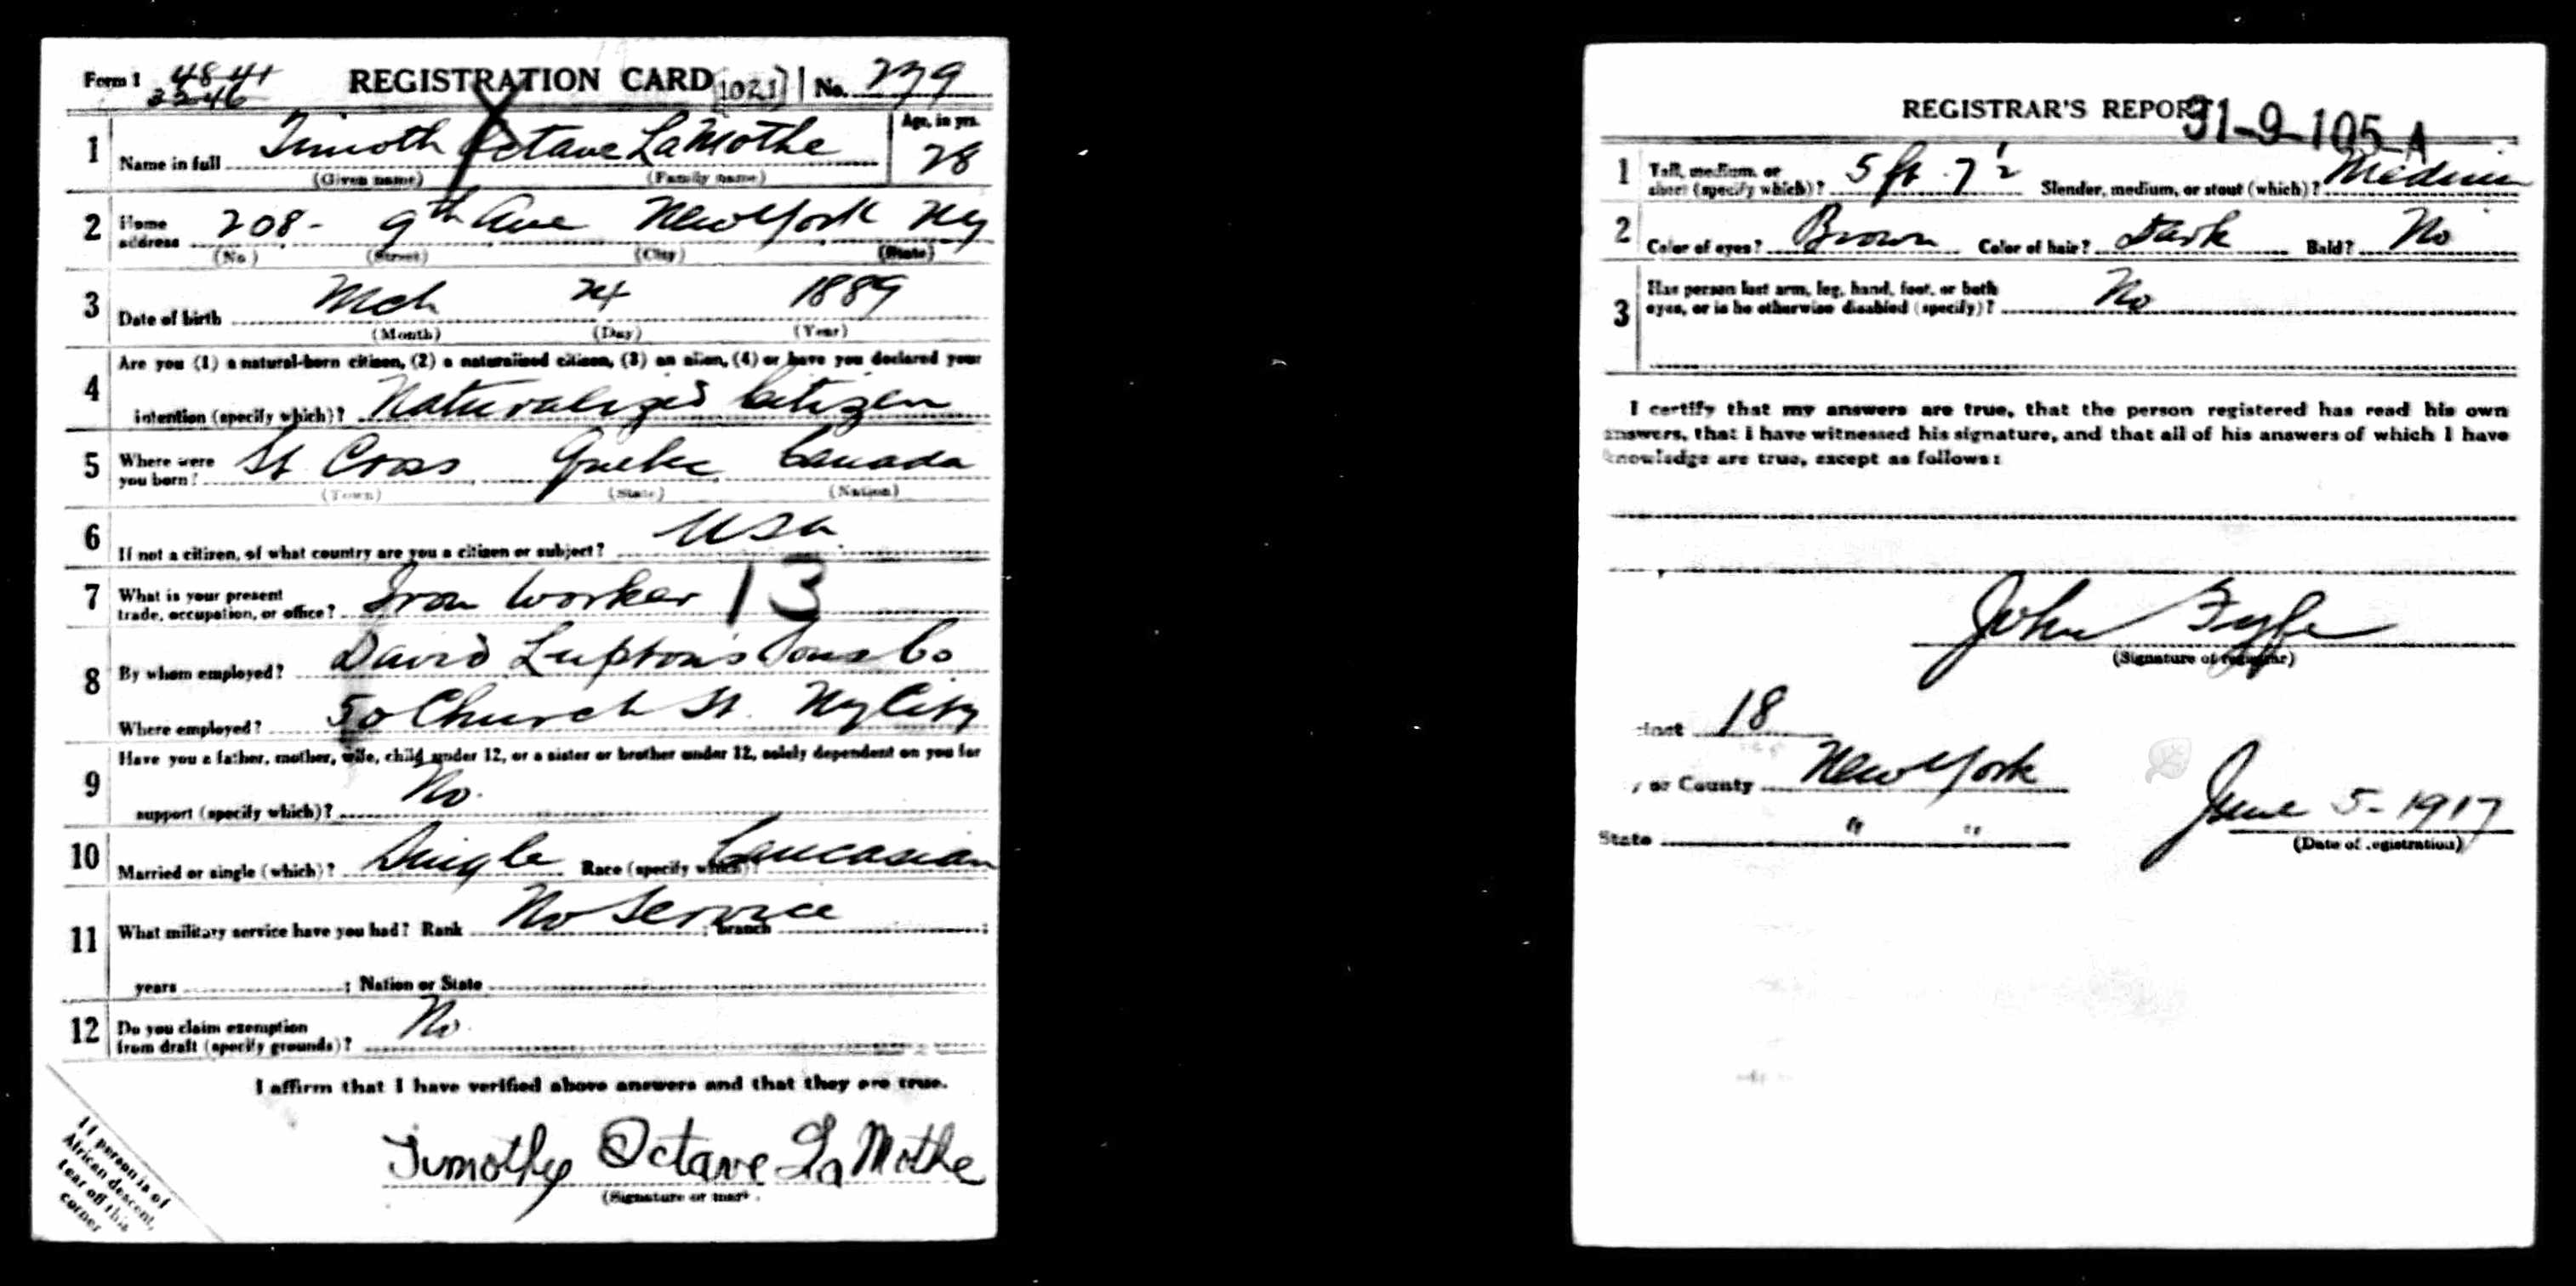 Form 1 4841 REGISTRATION CARD [1021] No. 279
3246
1 Name in full Timoth Octave LaMothe Age, in yrs. 28
(Given name) (Family name)
2 Home address 208- 9th Ave New York NY
(No.) (Street) (City) (State)
3 Date of birth Mch 24 1889
(Month) (Day) (Year)
4 Are you (1) a natural-born citizen, (2) a naturalized citizen, (3) an alien, (4) or have you declared your
intention (specify which)? Naturalized Citizen
5 Where were you born? St Cross Quebec Canada
(Town) (State) (Nation)
6 If not a citizen, of what country are you a citizen or subject? USA
7 What is your present trade, occupation, or office? Iron Worker 13
8 By whom employed? David Lupton's Sons Co
Where employed? 50 Church St. NY City
9 Have you a father, mother, wife, child under 12, or a sister or brother under 12, solely dependent on you for
support (specify which)? No.
10 Married or single (which)? Single Race (specify which)? Caucasian
11 What military service have you had? Rank No Service ; branch ;
years ; Nation or State
12 Do you claim exemption from draft (specify grounds)? No.
I affirm that I have verified above answers and that they are true.
Timothy Octave LaMothe
(Signature or mark)
If person is of
African descent,
tear off this
corner
REGISTRAR'S REPORT 31-9-105-A
1 Tall, medium, or short (specify which)? 5 ft. 7 1/2 Slender, medium, or stout (which)? Medium
2 Color of eyes? Brown Color of hair? Dark Bald? No
3 Has person lost arm, leg, hand, foot, or both
eyes, or is he otherwise disabled (specify)? No
I certify that my answers are true, that the person registered has read his own
answers, that I have witnessed his signature, and that all of his answers of which I have
knowledge are true, except as follows:
John Fyfe
(Signature of registrar)
cinct 18
, or County New York
State " "
June 5 - 1917
(Date of registration)